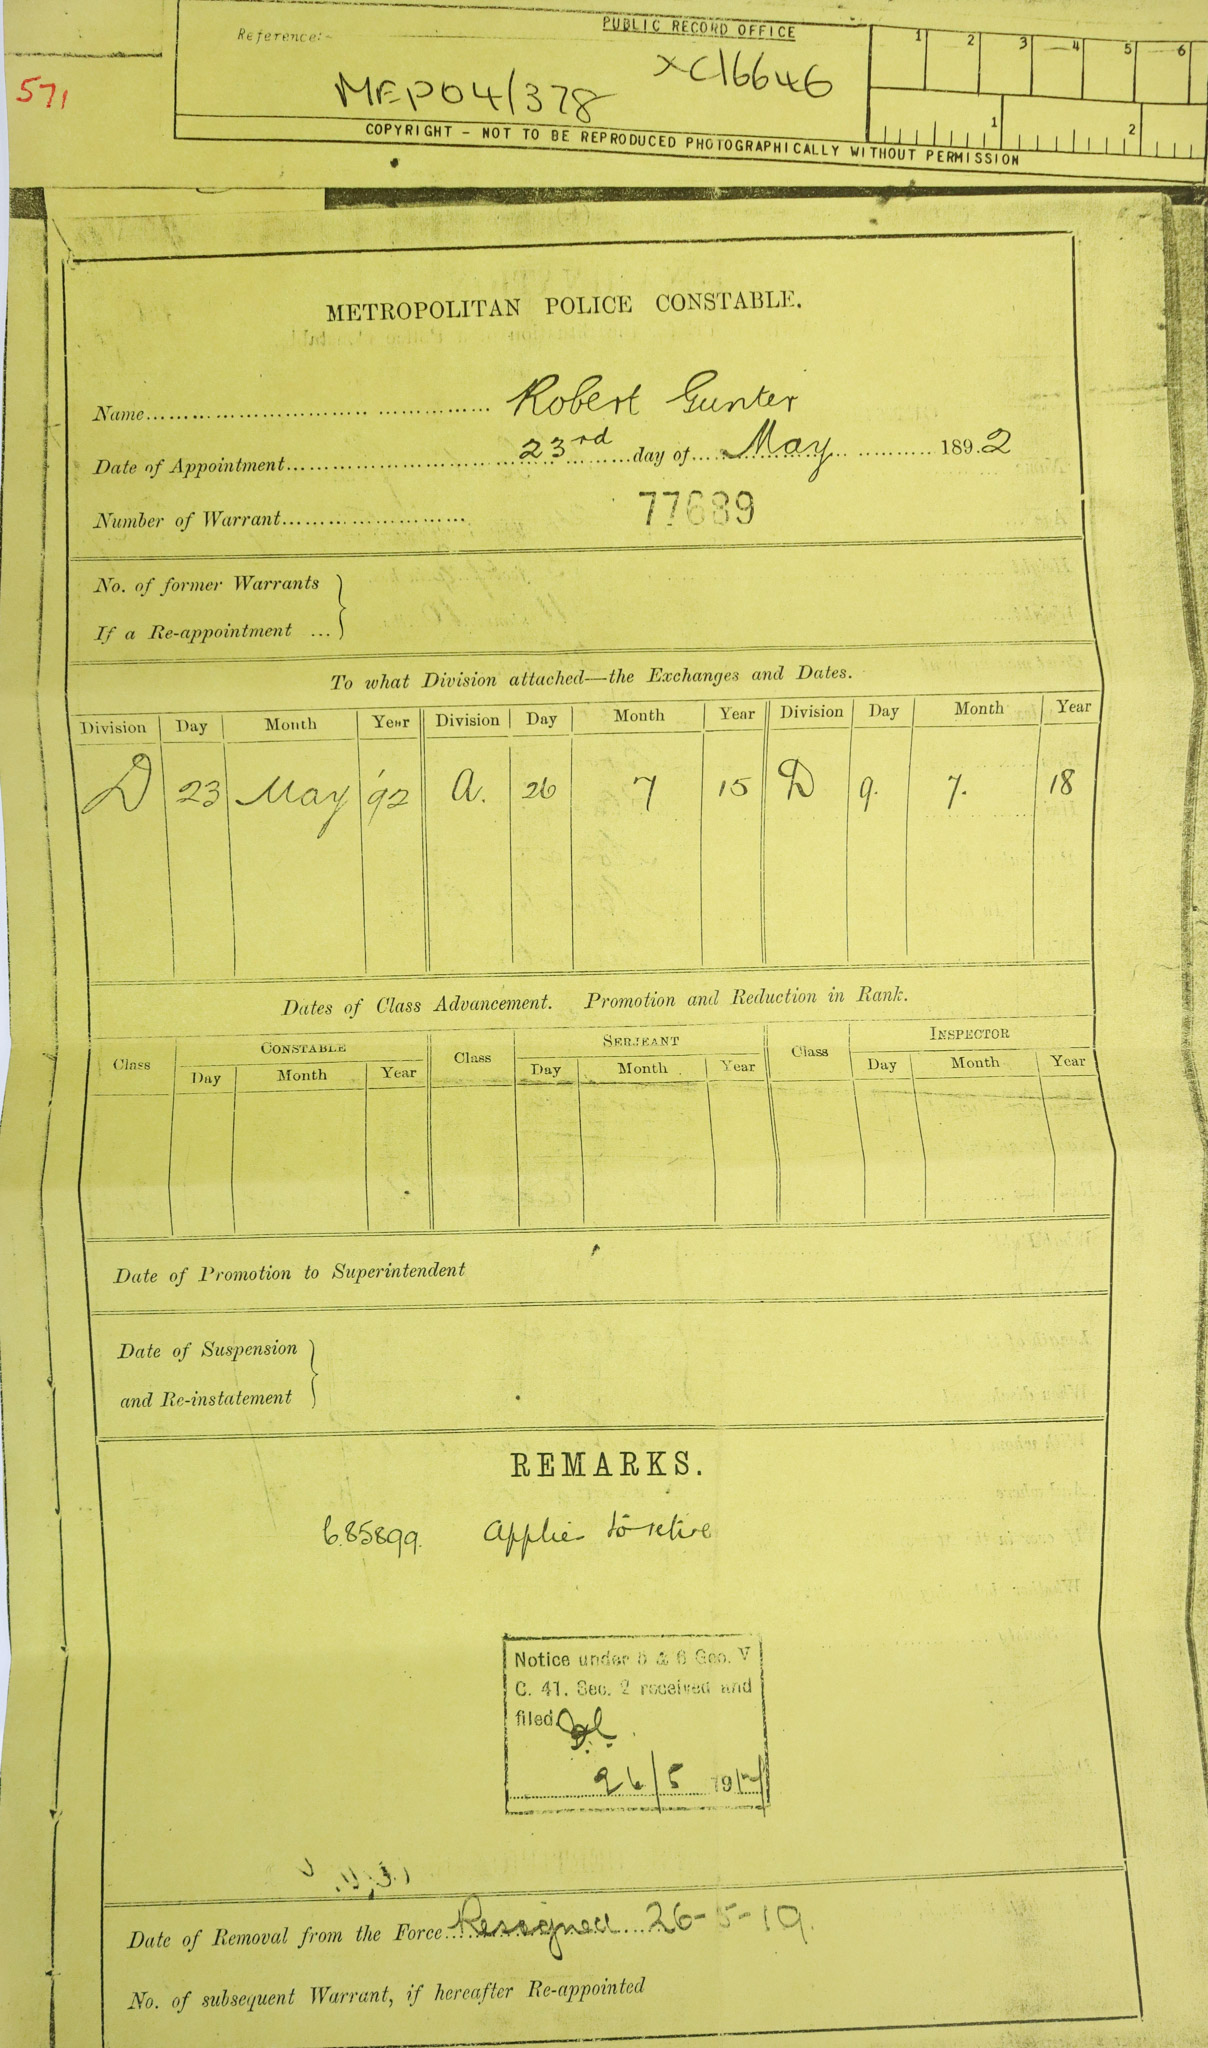 Reference:-
PUBLIC RECORD OFFICE
MEPO4/378
XC16646
1 2 3 4 5 6
1 2
COPYRIGHT - NOT TO BE REPRODUCED PHOTOGRAPHICALLY WITHOUT PERMISSION
571
METROPOLITAN POLICE CONSTABLE.
Name Robert Gunter
Date of Appointment 23rd day of May 1892
Number of Warrant 77689
No. of former Warrants
If a Re-appointment ...
To what Division attached—the Exchanges and Dates.
Division Day Month Year Division Day Month Year Division Day Month Year
D 23 May '92 A. 26 7 15 D 9. 7. 18
Dates of Class Advancement. Promotion and Reduction in Rank.
Class CONSTABLE Class SERJEANT Class INSPECTOR
Day Month Year Day Month Year Day Month Year
Date of Promotion to Superintendent
Date of Suspension
and Re-instatement
REMARKS.
685899. Applies to retire
Notice under 5 & 6 Geo. V
C. 41. Sec. 2 received and
filed.
26/5 191
Date of Removal from the Force Resigned 26-5-19.
No. of subsequent Warrant, if hereafter Re-appointed